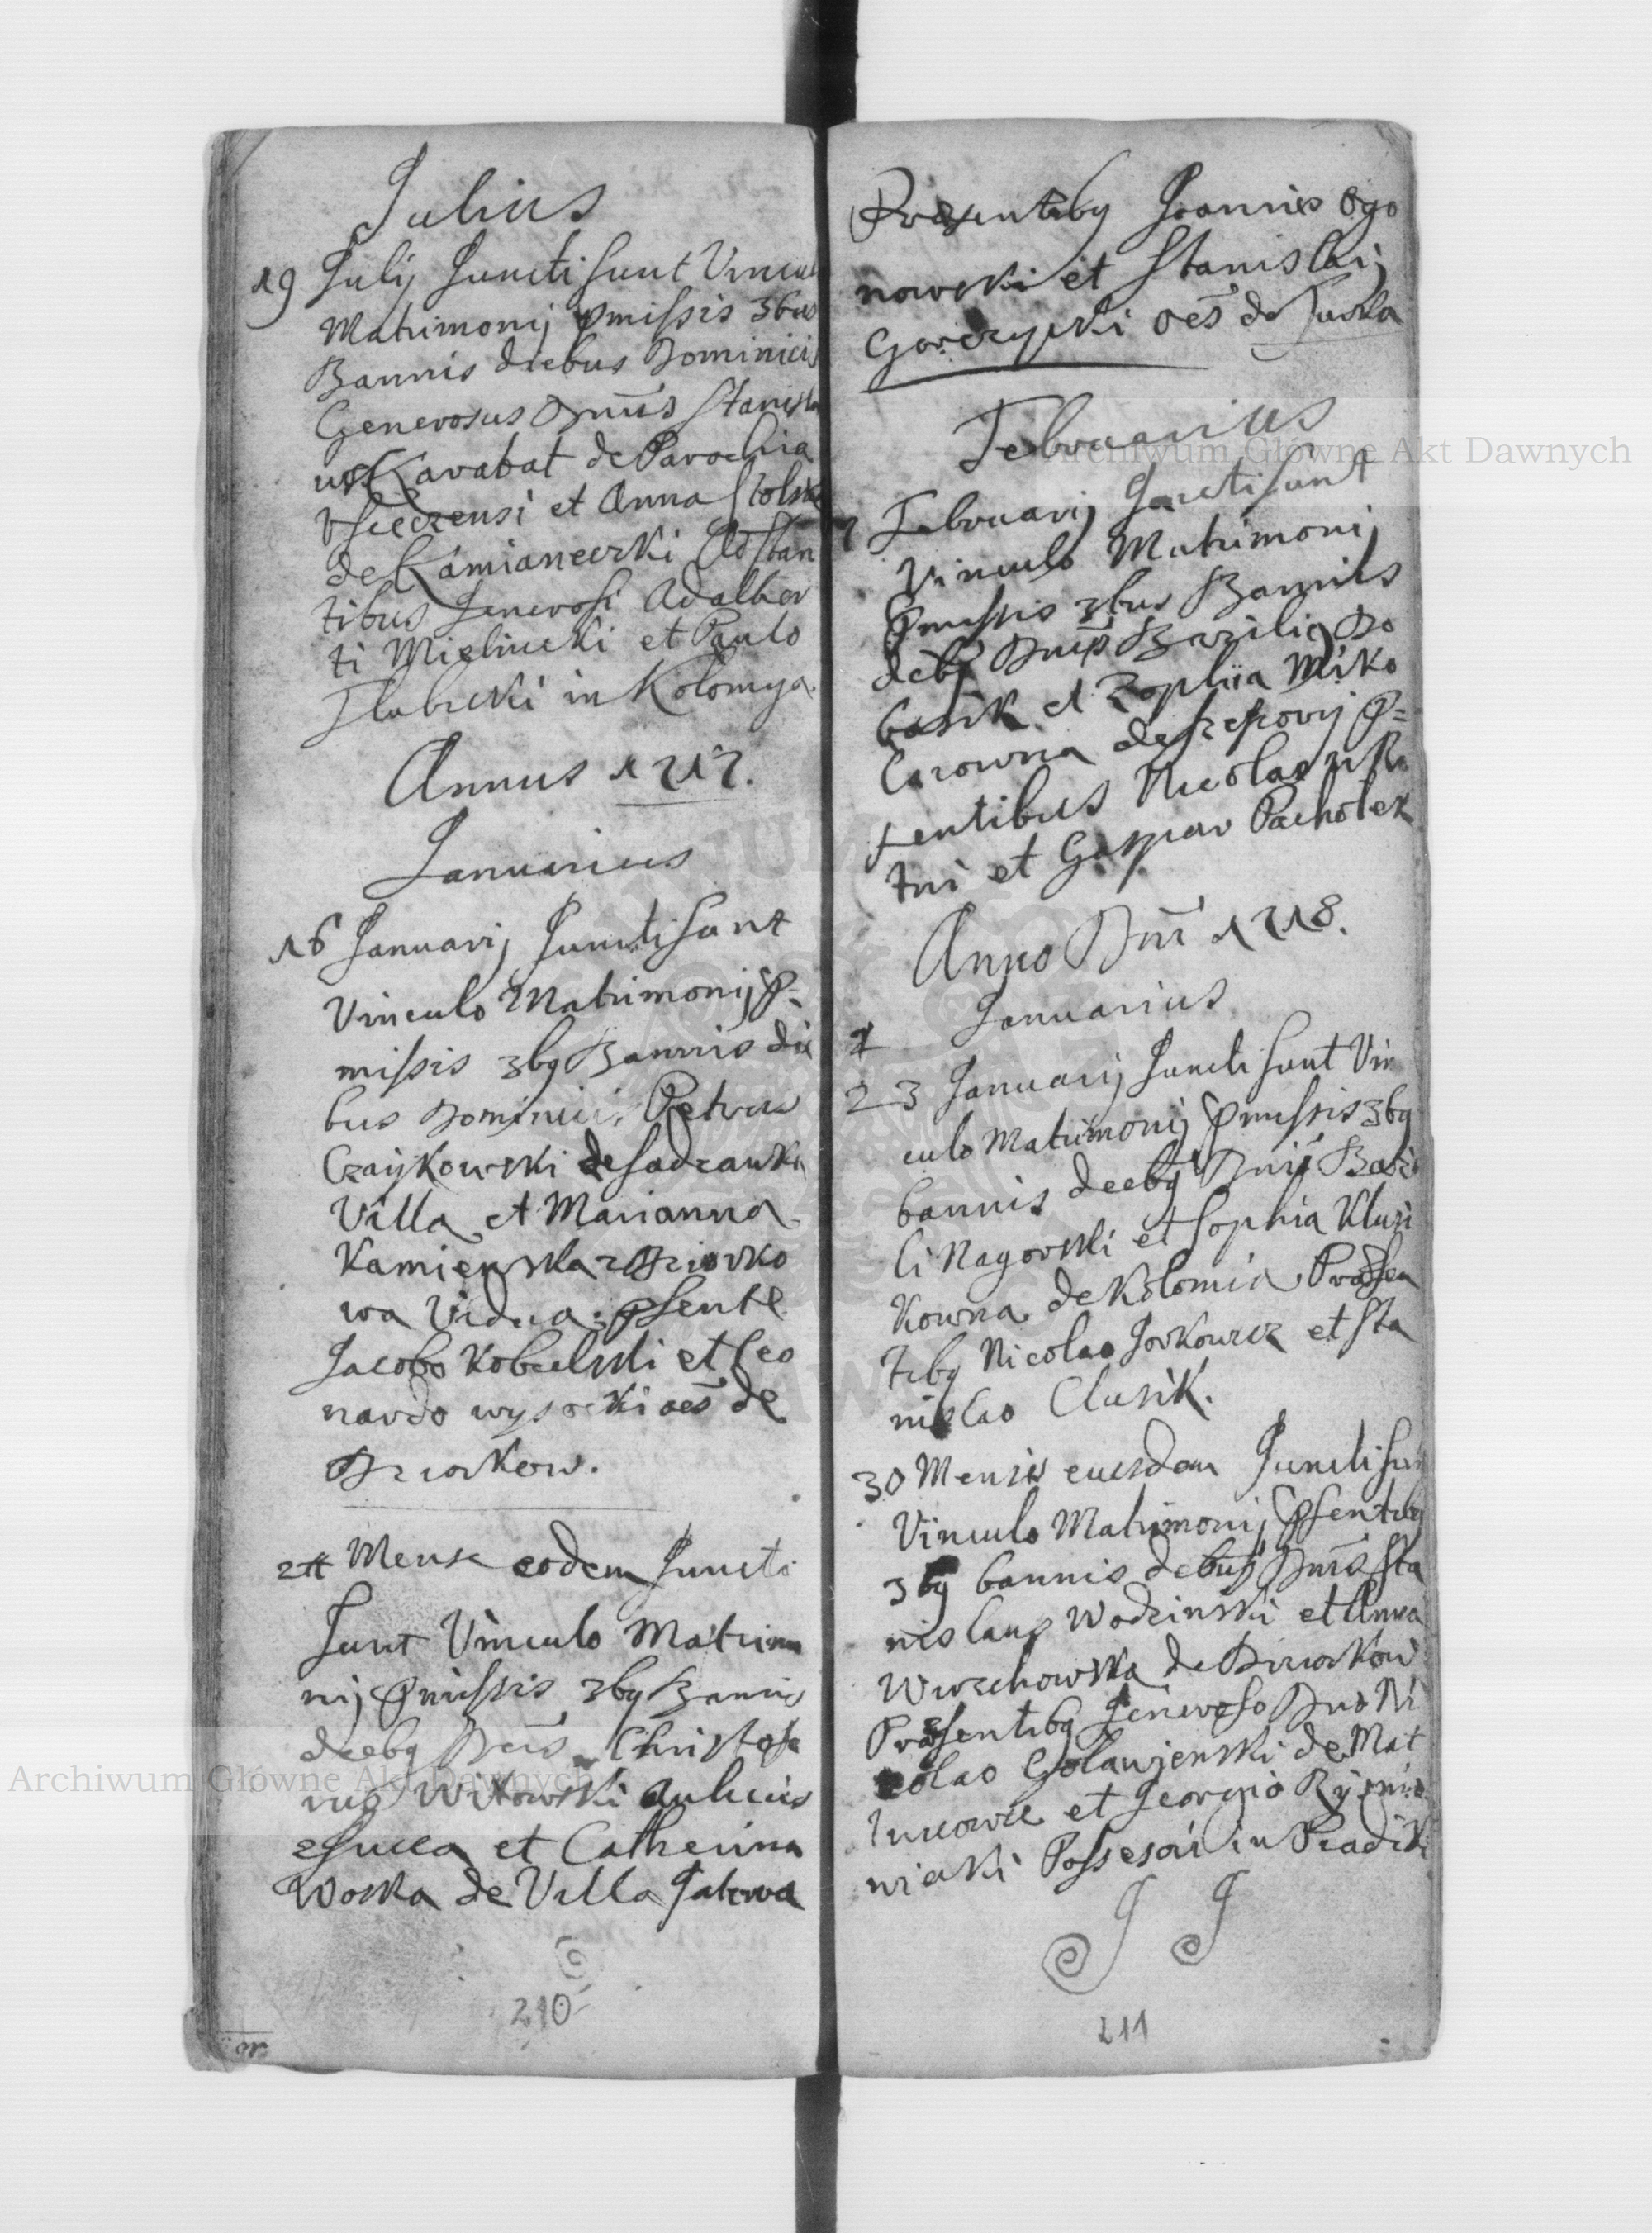 Julius
19 Julij Juncti sunt Vincul
Matrimonij pmissis 3bus
Bannis diebus Dominicis
Generosus Dnus Stanisla
us Karabat de Parochia
et Anna Stolska
de Kamianeczki Adstan
tibus Generosi Adalber
ti Mielnicki et Paulo
Hlubicki in Kolomya.
Annus 1717.
Januarius
16 Januarij Juncti sunt
Vinculo Matrimonij p-
missis 3bq Bannis die
bus Dominicis Petrus
Czaykowski de Sadzauka
Villa et Marianna
Kamienska z Dziurko
wa Vidua psente
Jacobo Kobielski et Leo
nardo Wysocki oes de
Dziurkow.
Mense eodem Juncti
sunt Vinculo Matrimo
nij pmissis 3bq Bannis
deebq Dnis Christofo
rus Witowski Aulicus
et Catherina
Woska de Villa Jakowa
210
Præsentibq Joannis Ogo
nowski et Stanislaij
Gorczycki oes de
Februarius
7 Februarij Juncti sunt
Vinculo Matrimonij
Pmissis 3bus Bannis
debq Dnis Bazilig Bo
basik et Zophiia Miko
laiowna de p=
sentibus Nicolao
tni et Gaspar Pacholek
Anno Dni 1718.
Januarius
1
23 Januarij Juncti sunt Vin
culo Matrimonij pmissis 3bq
bannis deebq Dnis Basi
li Nagorski et Sophia Klusi
kowna de Kolomia Præsen
tibq Nicolao Jorkowicz et Sta
nislao Clusik.
30 Mensis eiusdem Juncti sun
Vinculo Matrimonij Psentibq
3bq bannis debus Dnis Sta
nislaus Wodzinski et Anna
Wierzchowska de Dziurkow
Præsentibq Generoso Dno Ni
colao Golawjenski de Mat
iuiowce et Georgio Rymi
niecki Possesori in Peadik
211